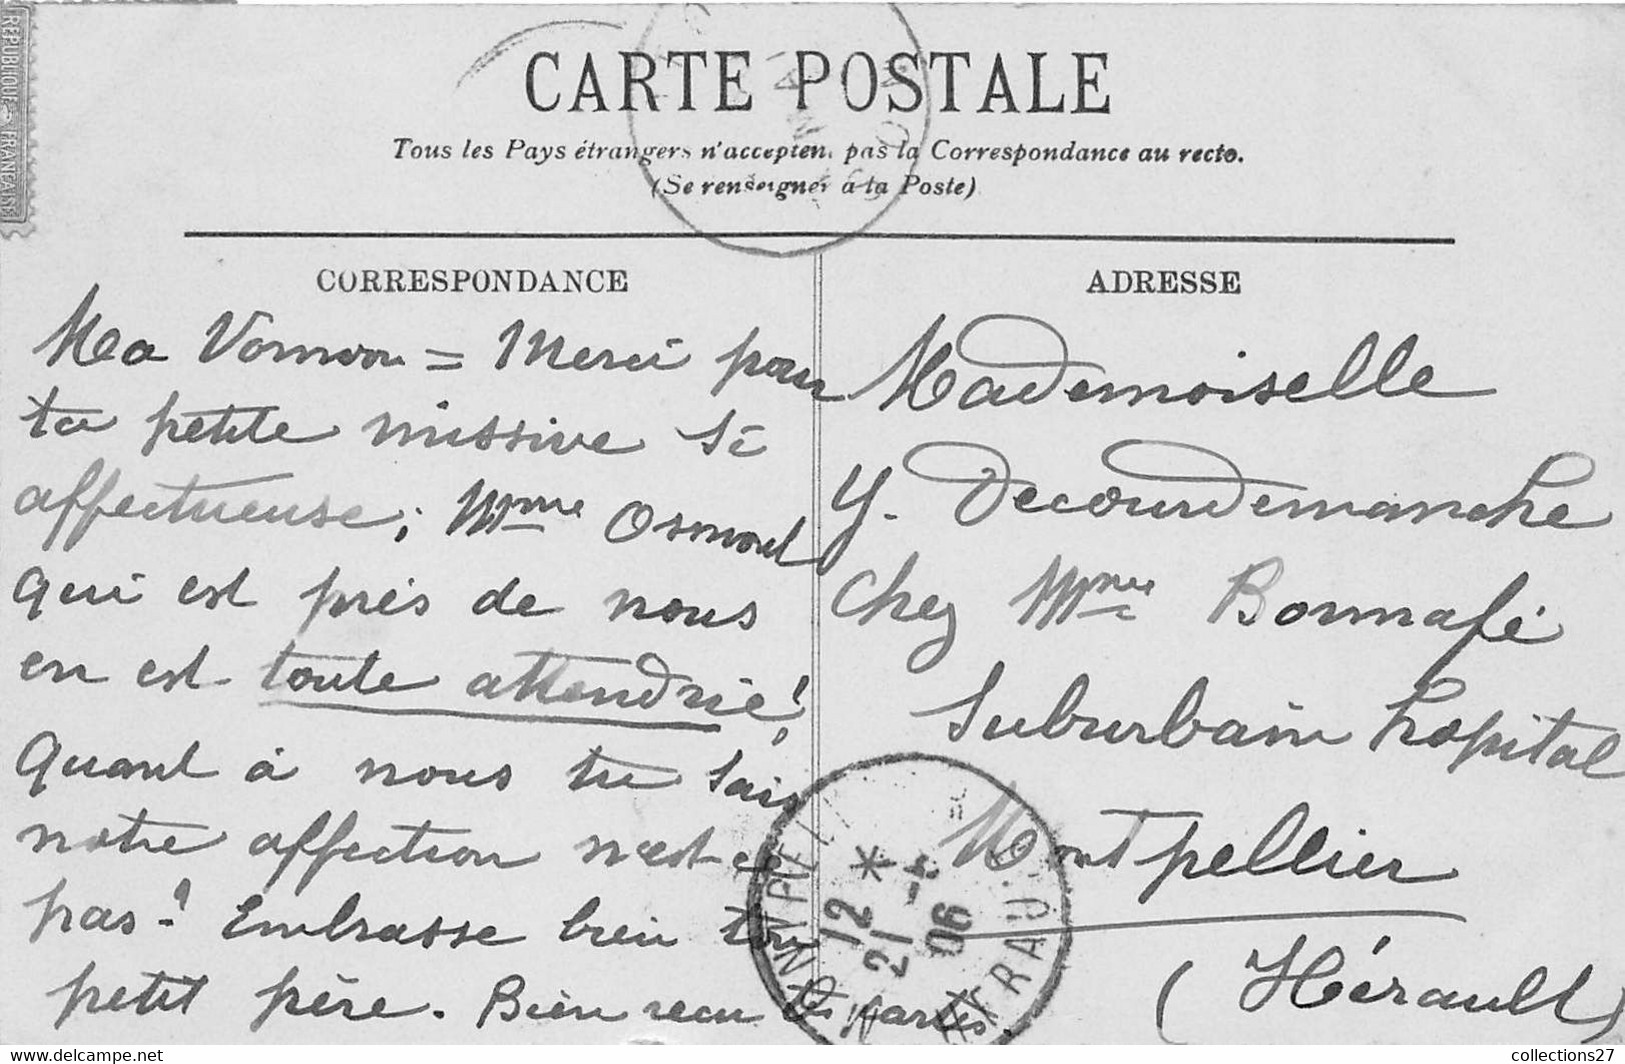 REPUBLIQUE FRANÇAISE
CARTE POSTALE
Tous les Pays étrangers n'acceptent pas la Correspondance au recto.
(Se renseigner à la Poste)
CORRESPONDANCE
Ma = Merci pour
ta petite missive si
affectueuse; Mme Osmont
qui est près de nous
en est toute attendrie!
Quant à nous tu sais
notre affection n'est-ce
pas-! Embrasse bien ton
petit père. Bien reçu tes cartes.
ADRESSE
Mademoiselle
Y. Decourdemanche
chez Mme Bonnafé
Suburbain hopital
Montpellier
(Hérault)
MONTPELLIER
12
21 -4
06
HERAULT
collections27